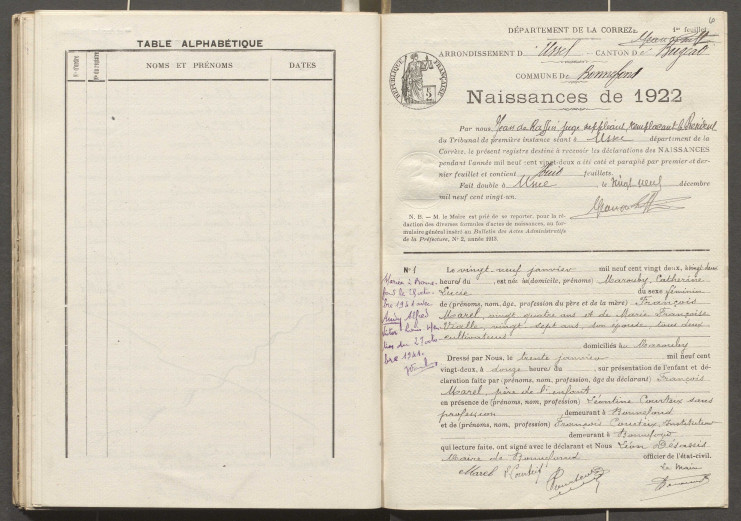 TABLE ALPHABÉTIQUE
NOMS ET PRÉNOMS
DATES
DÉPARTEMENT DE LA CORRÈZE
1er feuillet
ARRONDISSEMENT D Ussel CANTON De Bugeat
COMMUNE De Bonnefond
RÉPUBLIQUE FRANÇAISE
Naissances de 1922
Par nous Jean de juge suppléant, remplaçant le Président
du Tribunal de première instance séant à Ussel département de la
Corrèze, le présent registre destiné à recevoir les déclarations des NAISSANCES
pendant l'année mil neuf cent vingt-deux a été coté et paraphé par premier et der-
nier feuillet et contient huit feuillets.
Fait double à Ussel, le vingt neuf décembre
mil neuf cent vingt-un.
N. B. — M. le Maire est prié de se reporter, pour la ré-
daction des diverses formules d'actes de naissances, au for-
mulaire général inséré au Bulletin des Actes Administratifs
de la Préfecture, N° 2, année 1913.
N° 1
Le vingt-neuf janvier mil neuf cent vingt deux, à vingt deux
heures du , est née au (domicile, prénoms) Marouby, Catherine
Lucie du sexe féminin
de (prénoms, nom, âge, profession du père et de la mère) François
Marel, vingt quatre ans et de Marie Françoise
Vialle, vingt sept ans, son épouse, tous deux
cultivateurs
domiciliés à Marouby
Dressé par Nous, le trente janvier mil neuf cent
vingt-deux, à douze heures du , sur présentation de l'enfant et dé-
claration faite par (prénoms, nom, profession, âge du déclarant) François
Marel, père de l'enfant
en présence de (prénoms, nom, profession) Léontine Courteix sans
profession demeurant à Bonnefond
et de (prénoms, nom, profession) François Courteix, instituteur
demeurant à Bonnefond
qui lecture faite, ont signé avec le déclarant et Nous Léon
Maire de Bonnefond officier de l'état-civil.
Marel
Le Maire
Mariée à Bonne-
fond le
bre 1941 avec
Alfred
bre 1941.